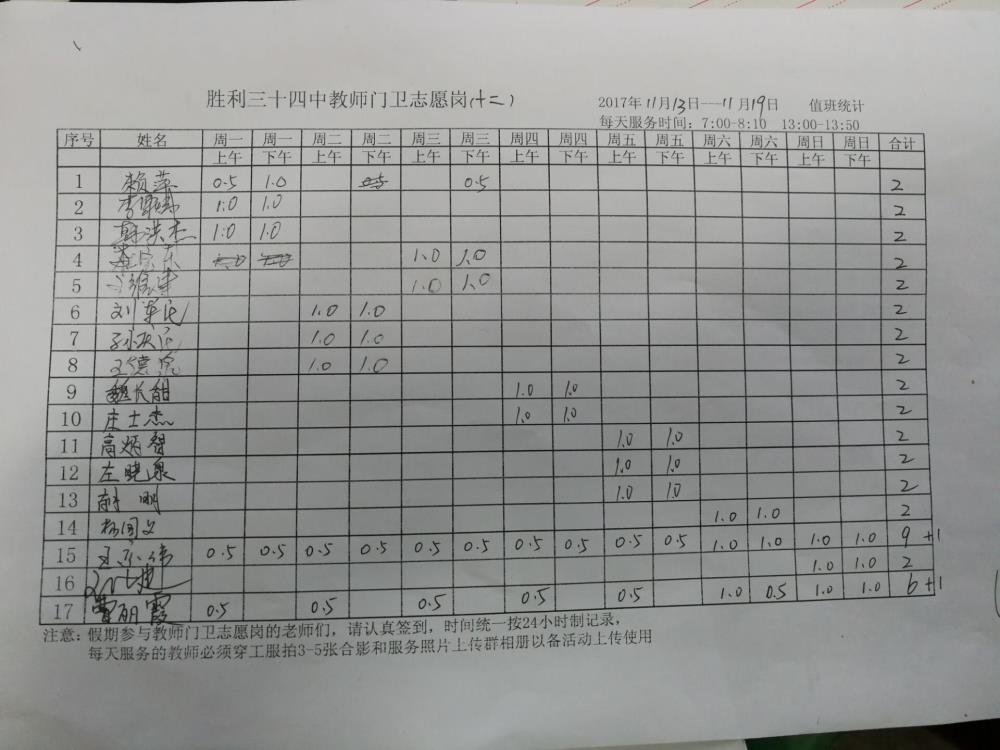 胜利三十四中教师门卫志愿岗(十二)
2017年11月13日---11月19日 值班统计
每天服务时间：7:00-8:10 13:00-13:50
序号 姓名 周一 周一 周二 周二 周三 周三 周四 周四 周五 周五 周六 周六 周日 周日 合计
上午 下午 上午 下午 上午 下午 上午 下午 上午 下午 上午 下午 上午 下午
1 赖萍 0.5 1.0 0.5 0.5 2
2 1.0 1.0 2
3 洪杰 1.0 1.0 2
4 1.0 1.0 1.0 1.0 2
5 1.0 1.0 2
6 刘 1.0 1.0 2
7 孙 1.0 1.0 2
8 王德 1.0 1.0 2
9 魏长 1.0 1.0 2
10 庄士杰 1.0 1.0 2
11 高炳智 1.0 1.0 2
12 左晓泉 1.0 1.0 2
13 明 1.0 1.0 2
14 杨同义 1.0 1.0 2
15 王 0.5 0.5 0.5 0.5 0.5 0.5 0.5 0.5 0.5 0.5 1.0 1.0 1.0 1.0 9+1
16 1.0 1.0 2
17 丽霞 0.5 0.5 0.5 0.5 0.5 1.0 0.5 1.0 1.0 6+1
注意：假期参与教师门卫志愿岗的老师们，请认真签到，时间统一按24小时制记录，
每天服务的教师必须穿工服拍3-5张合影和服务照片上传群相册以备活动上传使用